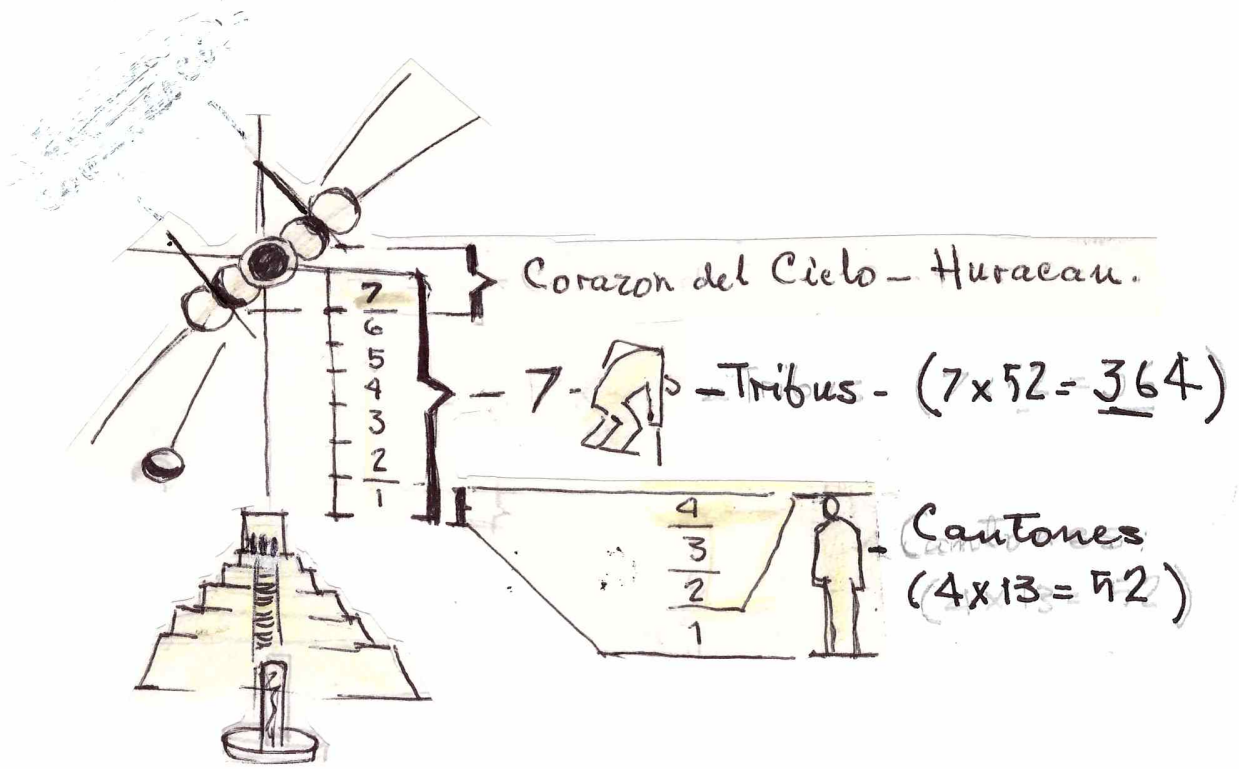 Corazon del Cielo - Huracan.
7
6
5
4
3
2
1
- 7 - - Tribus - (7x52 = 364)
4
3
2
1
- Cantones
(4x13 = 52)